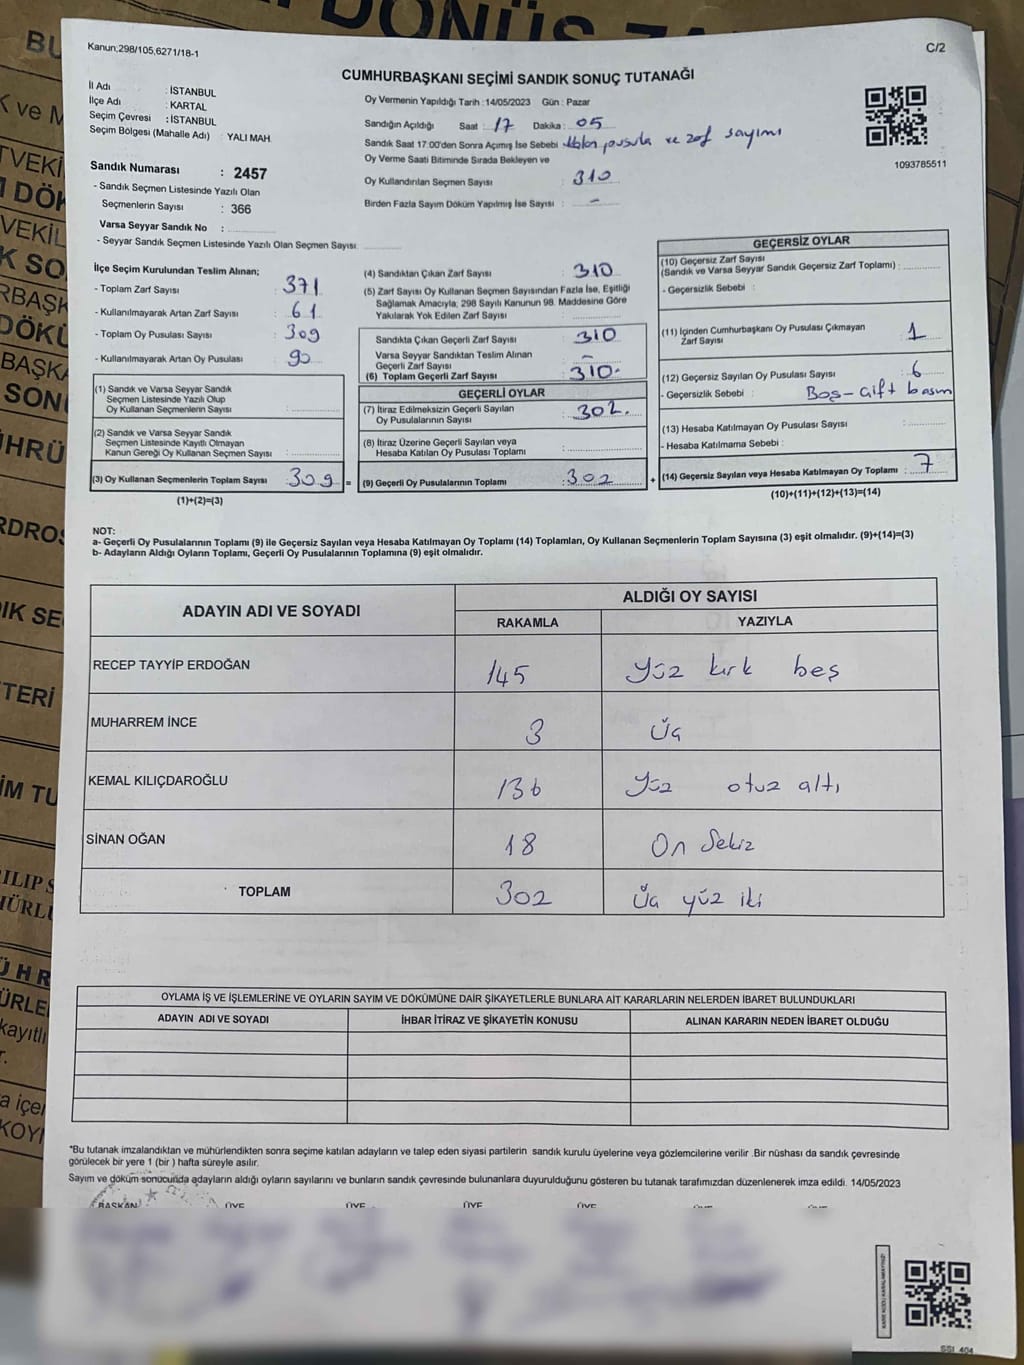 DÖNÜŞ
Kanun;298/105,6271/18-1
C/2
CUMHURBAŞKANI SEÇİMİ SANDIK SONUÇ TUTANAĞI
İl Adı : İSTANBUL
İlçe Adı : KARTAL
Seçim Çevresi : İSTANBUL
Seçim Bölgesi (Mahalle Adı) : YALI MAH.
Sandık Numarası : 2457
- Sandık Seçmen Listesinde Yazılı Olan
Seçmenlerin Sayısı : 366
Varsa Seyyar Sandık No :
- Seyyar Sandık Seçmen Listesinde Yazılı Olan Seçmen Sayısı:
Oy Vermenin Yapıldığı Tarih :14/05/2023 Gün : Pazar
Sandığın Açıldığı Saat : 17 Dakika : 05
Sandık Saat 17.00'den Sonra Açımış İse Sebebi pusula ve zarf sayımı
Oy Verme Saati Bitiminde Sırada Bekleyen ve
Oy Kullandırılan Seçmen Sayısı : 310
Birden Fazla Sayım Döküm Yapılmış İse Sayısı : -
1093785511
İlçe Seçim Kurulundan Teslim Alınan;
- Toplam Zarf Sayısı : 371
- Kullanılmayarak Artan Zarf Sayısı : 61
- Toplam Oy Pusulası Sayısı : 309
- Kullanılmayarak Artan Oy Pusulası : 90
(1) Sandık ve Varsa Seyyar Sandık
Seçmen Listesinde Yazılı Olup
Oy Kullanan Seçmenlerin Sayısı :
(2) Sandık ve Varsa Seyyar Sandık
Seçmen Listesinde Kayıtlı Olmayan
Kanun Gereği Oy Kullanan Seçmen Sayısı :
(3) Oy Kullanan Seçmenlerin Toplam Sayısı : 309 =
(1)+(2)=(3)
(4) Sandıktan Çıkan Zarf Sayısı : 310
(5) Zarf Sayısı Oy Kullanan Seçmen Sayısından Fazla İse, Eşitliği
Sağlamak Amacıyla; 298 Sayılı Kanunun 98. Maddesine Göre
Yakılarak Yok Edilen Zarf Sayısı :
Sandıkta Çıkan Geçerli Zarf Sayısı : 310
Varsa Seyyar Sandıktan Teslim Alınan
Geçerli Zarf Sayısı : -
(6) Toplam Geçerli Zarf Sayısı : 310.
GEÇERLİ OYLAR
(7) İtiraz Edilmeksizin Geçerli Sayılan
Oy Pusulalarının Sayısı : 302.
(8) İtiraz Üzerine Geçerli Sayılan veya
Hesaba Katılan Oy Pusulası Toplamı :
(9) Geçerli Oy Pusulalarının Toplamı : 302 +
GEÇERSİZ OYLAR
(10) Geçersiz Zarf Sayısı
(Sandık ve Varsa Seyyar Sandık Geçersiz Zarf Toplamı) :
- Geçersizlik Sebebi :
(11) İçinden Cumhurbaşkanı Oy Pusulası Çıkmayan
Zarf Sayısı : 1
(12) Geçersiz Sayılan Oy Pusulası Sayısı : 6
- Geçersizlik Sebebi : Boş - Çift basım
(13) Hesaba Katılmayan Oy Pusulası Sayısı :
- Hesaba Katılmama Sebebi :
(14) Geçersiz Sayılan veya Hesaba Katılmayan Oy Toplamı : 7
(10)+(11)+(12)+(13)=(14)
NOT:
a- Geçerli Oy Pusulalarının Toplamı (9) ile Geçersiz Sayılan veya Hesaba Katılmayan Oy Toplamı (14) Toplamları, Oy Kullanan Seçmenlerin Toplam Sayısına (3) eşit olmalıdır. (9)+(14)=(3)
b- Adayların Aldığı Oyların Toplamı, Geçerli Oy Pusulalarının Toplamına (9) eşit olmalıdır.
ADAYIN ADI VE SOYADI
ALDIĞI OY SAYISI
RAKAMLA YAZIYLA
RECEP TAYYİP ERDOĞAN 145 Yüz kırk beş
MUHARREM İNCE 3 Üç
KEMAL KILIÇDAROĞLU 136 Yüz otuz altı
SİNAN OĞAN 18 On Sekiz
TOPLAM 302 Üç yüz iki
OYLAMA İŞ VE İŞLEMLERİNE VE OYLARIN SAYIM VE DÖKÜMÜNE DAİR ŞİKAYETLERLE BUNLARA AİT KARARLARIN NELERDEN İBARET BULUNDUKLARI
ADAYIN ADI VE SOYADI İHBAR İTİRAZ VE ŞİKAYETİN KONUSU ALINAN KARARIN NEDEN İBARET OLDUĞU
*Bu tutanak imzalandıktan ve mühürlendikten sonra seçime katılan adayların ve talep eden siyasi partilerin sandık kurulu üyelerine veya gözlemcilerine verilir .Bir nüshası da sandık çevresinde
görülecek bir yere 1 (bir ) hafta süreyle asılır.
Sayım ve döküm sonucunda adayların aldığı oyların sayılarını ve bunların sandık çevresinde bulunanlara duyurulduğunu gösteren bu tutanak tarafımızdan düzenlenerek imza edildi. 14/05/2023
BAŞKAN ÜYE ÜYE ÜYE ÜYE
SSI_404